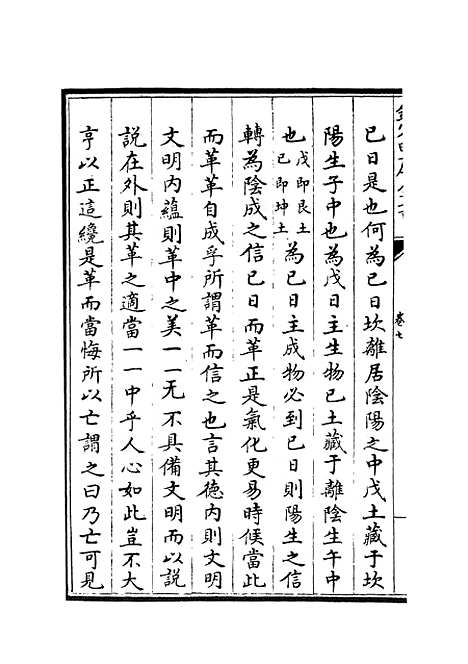 卷七
已日是也何為已日坎離居陰陽之中戊土藏于坎
陽生子中也為戊日主生物已土藏于離陰生午中
也戊即艮土已即坤土為已日主成物必到已日則陽生之信
轉為陰成之信已日而革正是氣化更易時候當此
而革革自成孚所謂革而信之也言其德内則文明
文明内蘊則革中之美一一无不具備文明而以説
説在外則其革之適當一一中乎人心如此豈不大
亨以正這纔是革而當悔所以亡謂之曰乃亡可見